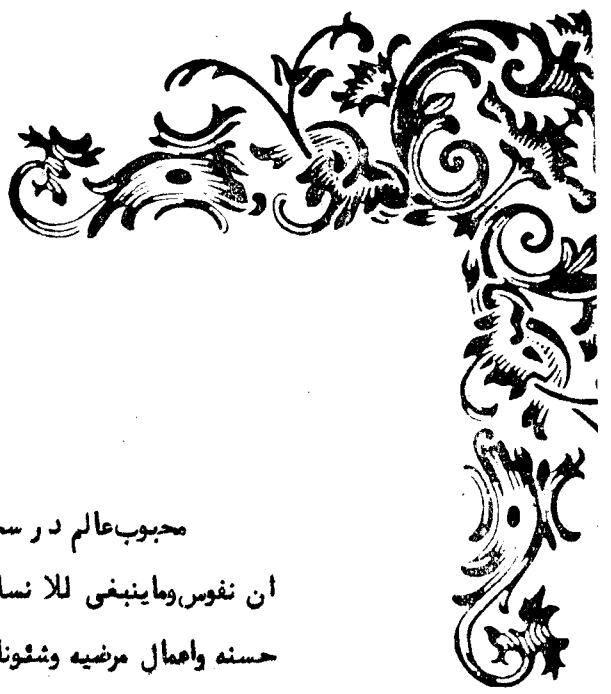 محبوب‌عالم در سـ
ان نفوس وماینبغی للا نسا
حسنه واعمال مرضیه وشئونا